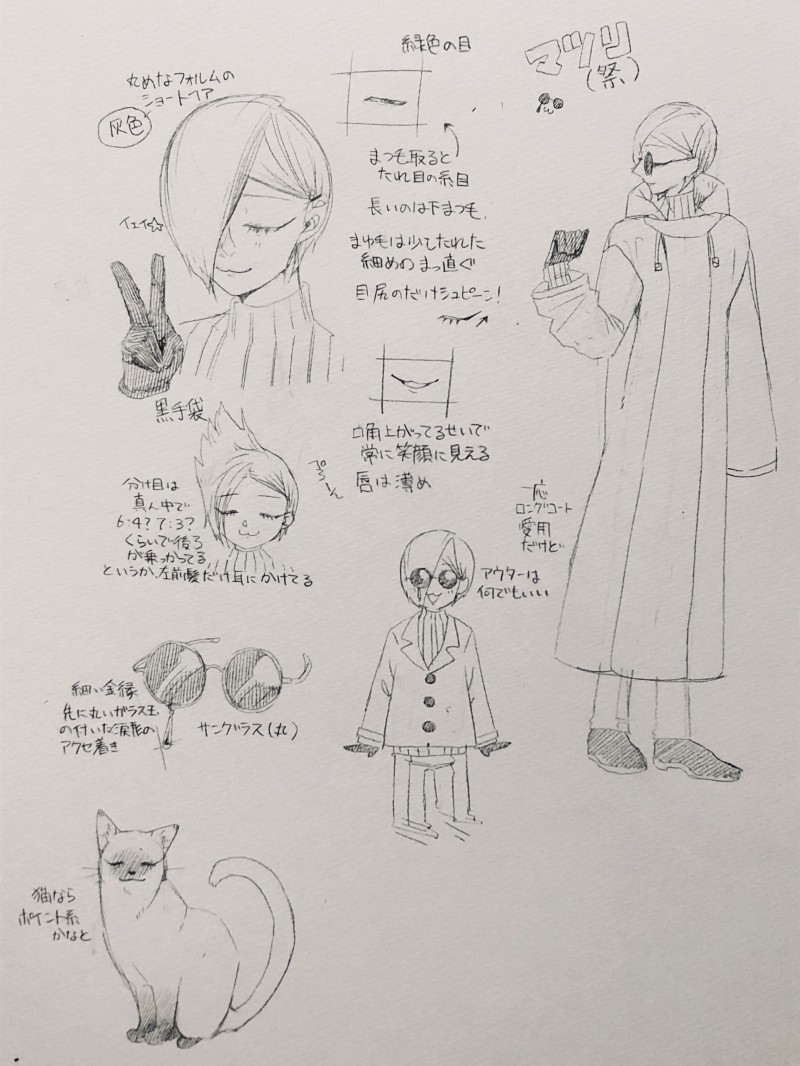 緑色の目
マツリ
(祭)
丸めなフォルムの
ショートヘア
灰色
まつ毛取ると
たれ目の糸目
長いのは下まつ毛.
まゆ毛は少したれた
細めのまっ直ぐ
目尻のだけシュピーン!
イェイ☆
黒手袋
口角上がってるせいで
常に笑顔に見える
唇は薄め
分け目は
真ん中で
6:4?7:3?
くらいで後ろ
が乗っかってる
というか、左前髪だけ耳にかけてる
一応
ロングコート
愛用
だけど
アウターは
何でもいい
細い金縁
先に丸いガラス玉
の付いた涙形の
アクセ着き
サングラス(丸)
猫なら
ポイント系
かなと